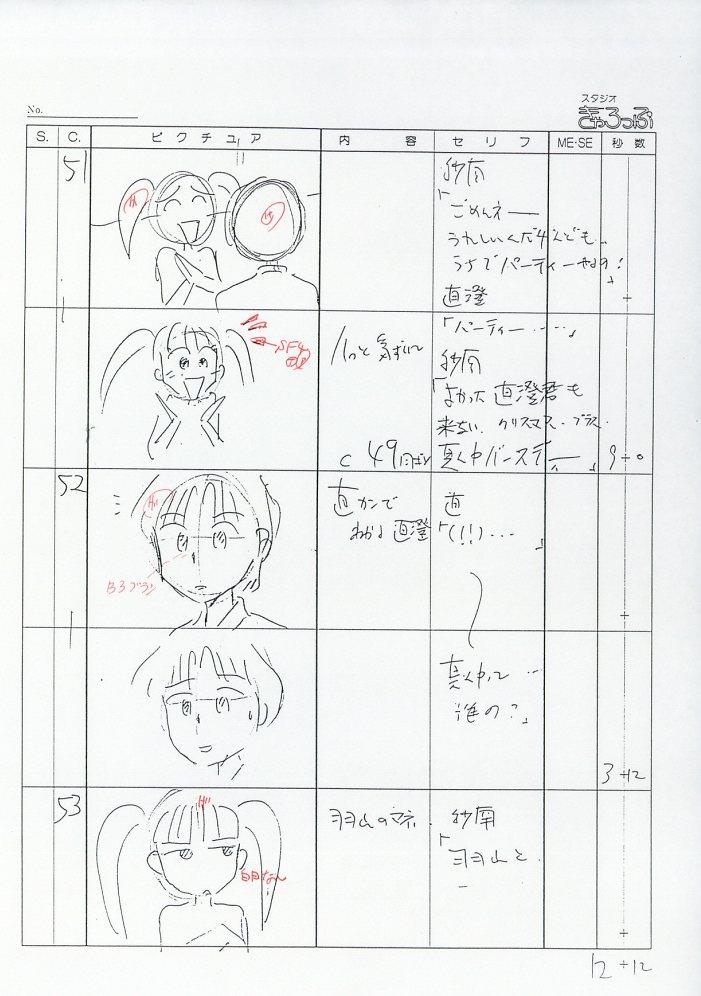 No.
スタジオ
ぎゃろっぷ
S. C. ピクチュア 内容 セリフ ME・SE 秒数
51
紗南
「ごめんネー
うれしいんだけんども…
うちでパーティーやるの!」
直澄
「パーティー……」
ハッと気ずいて
紗南
「よかった 直澄君も
来ない、クリスマス・プラス
真ん中バースデー」
C 49
9+0
52
直カンで
わかる 直澄
直
「(!!)…
B3ブラシ
真ん中って…
誰の?」
3+12
53
ヨヨ山のマネ.
紗南
「ヨヨ山と
12+12